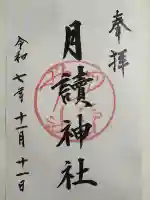 奉拝
月讀神社
令和七年十一月十一日